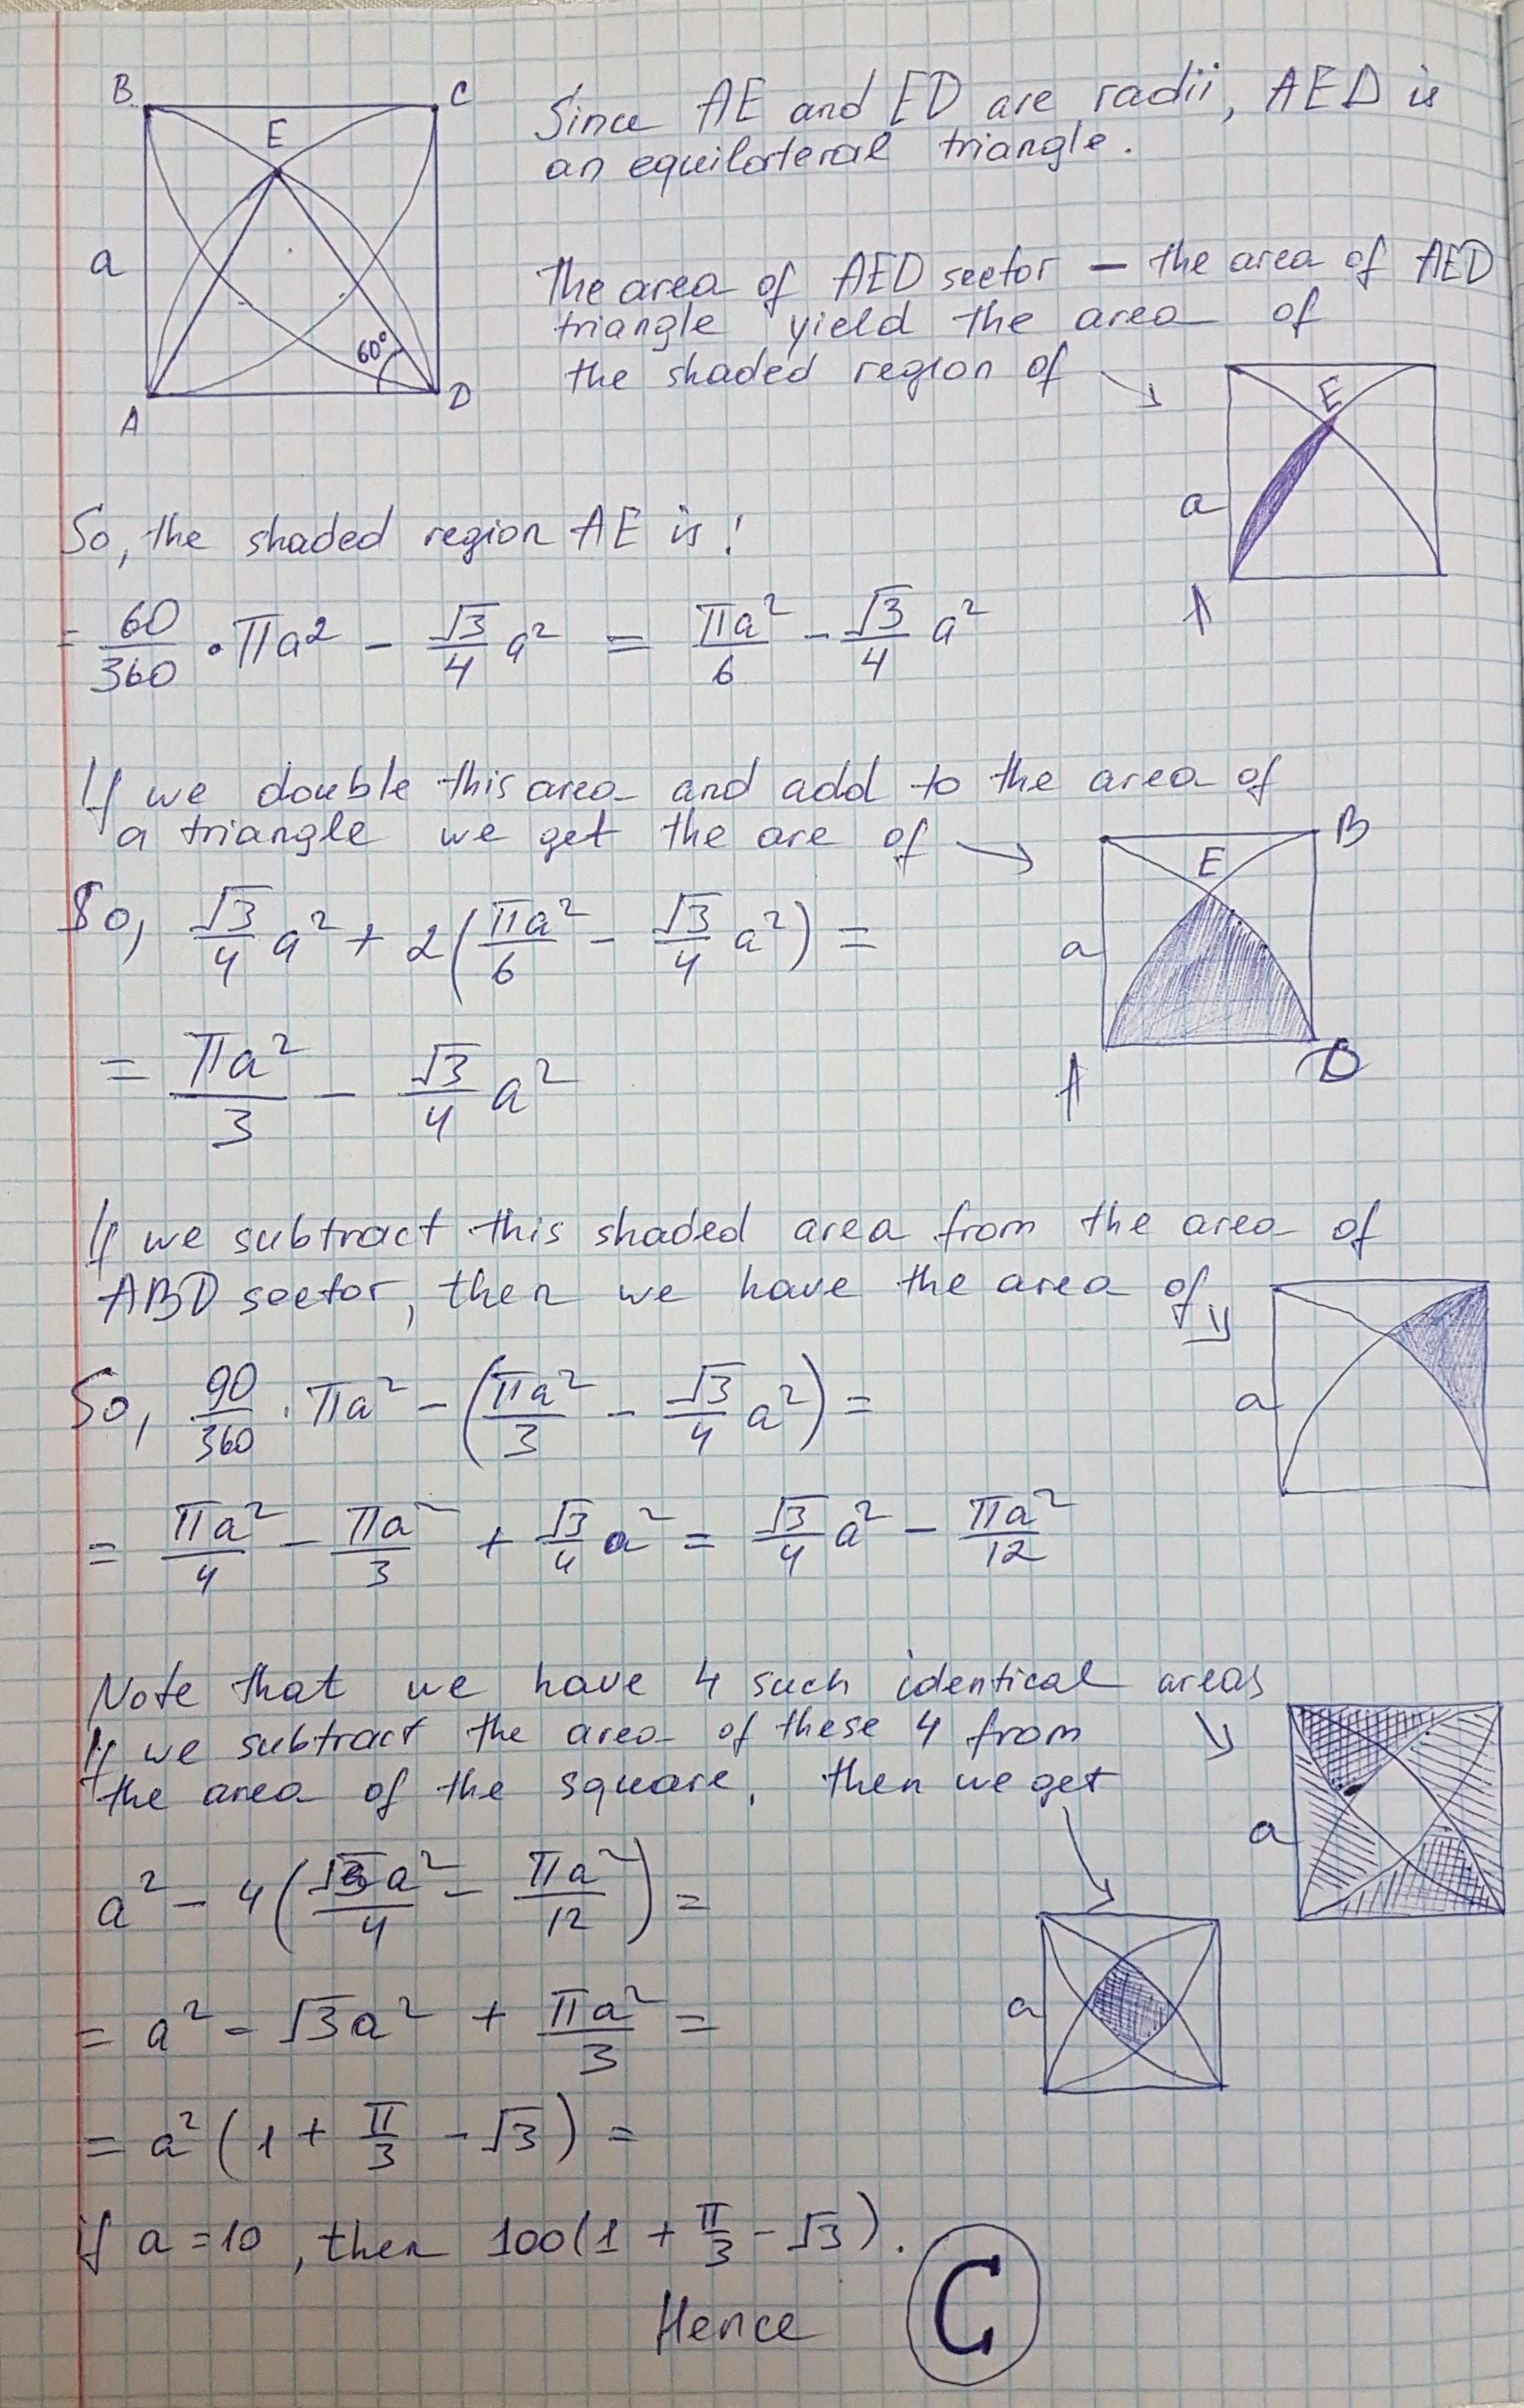 B
C
E
a
60°
A
D
Since AE and ED are radii, AED is
an equilateral triangle.
The area of AED sector – the area of AED
triangle yield the area of
the shaded region of →
E
a
A
So, the shaded region AE is:
= 60/360 · πa² - √3/4 a² = πa²/6 - √3/4 a²
If we double this area and add to the area of
a triangle we get the are of →
B
E
a
A
D
So, √3/4 a² + 2(πa²/6 - √3/4 a²) =
= πa²/3 - √3/4 a²
If we subtract this shaded area from the area of
ABD sector, then we have the area of
a
So, 90/360 · πa² - (πa²/3 - √3/4 a²) =
= πa²/4 - πa²/3 + √3/4 a² = √3/4 a² - πa²/12
Note that we have 4 such identical areas
If we subtract the area of these 4 from
the area of the square, then we get
a
a² - 4(√3a²/4 - πa²/12) =
= a² - √3a² + πa²/3 =
a
= a²(1 + π/3 - √3) =
if a = 10, then 100(1 + π/3 - √3).
Hence C